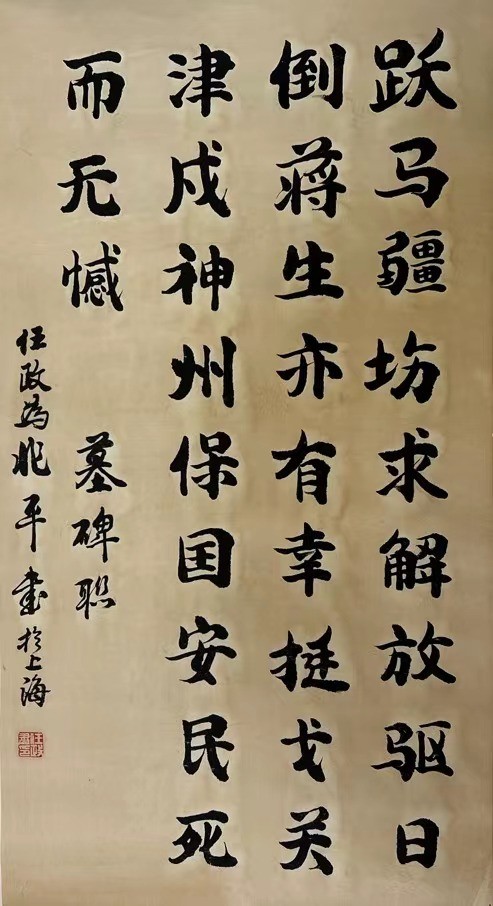 跃马疆场求解放驱日
倒蒋生亦有幸挺戈关
津戍神州保国安民死
而无憾
墓碑联
任政為兆平书於上海